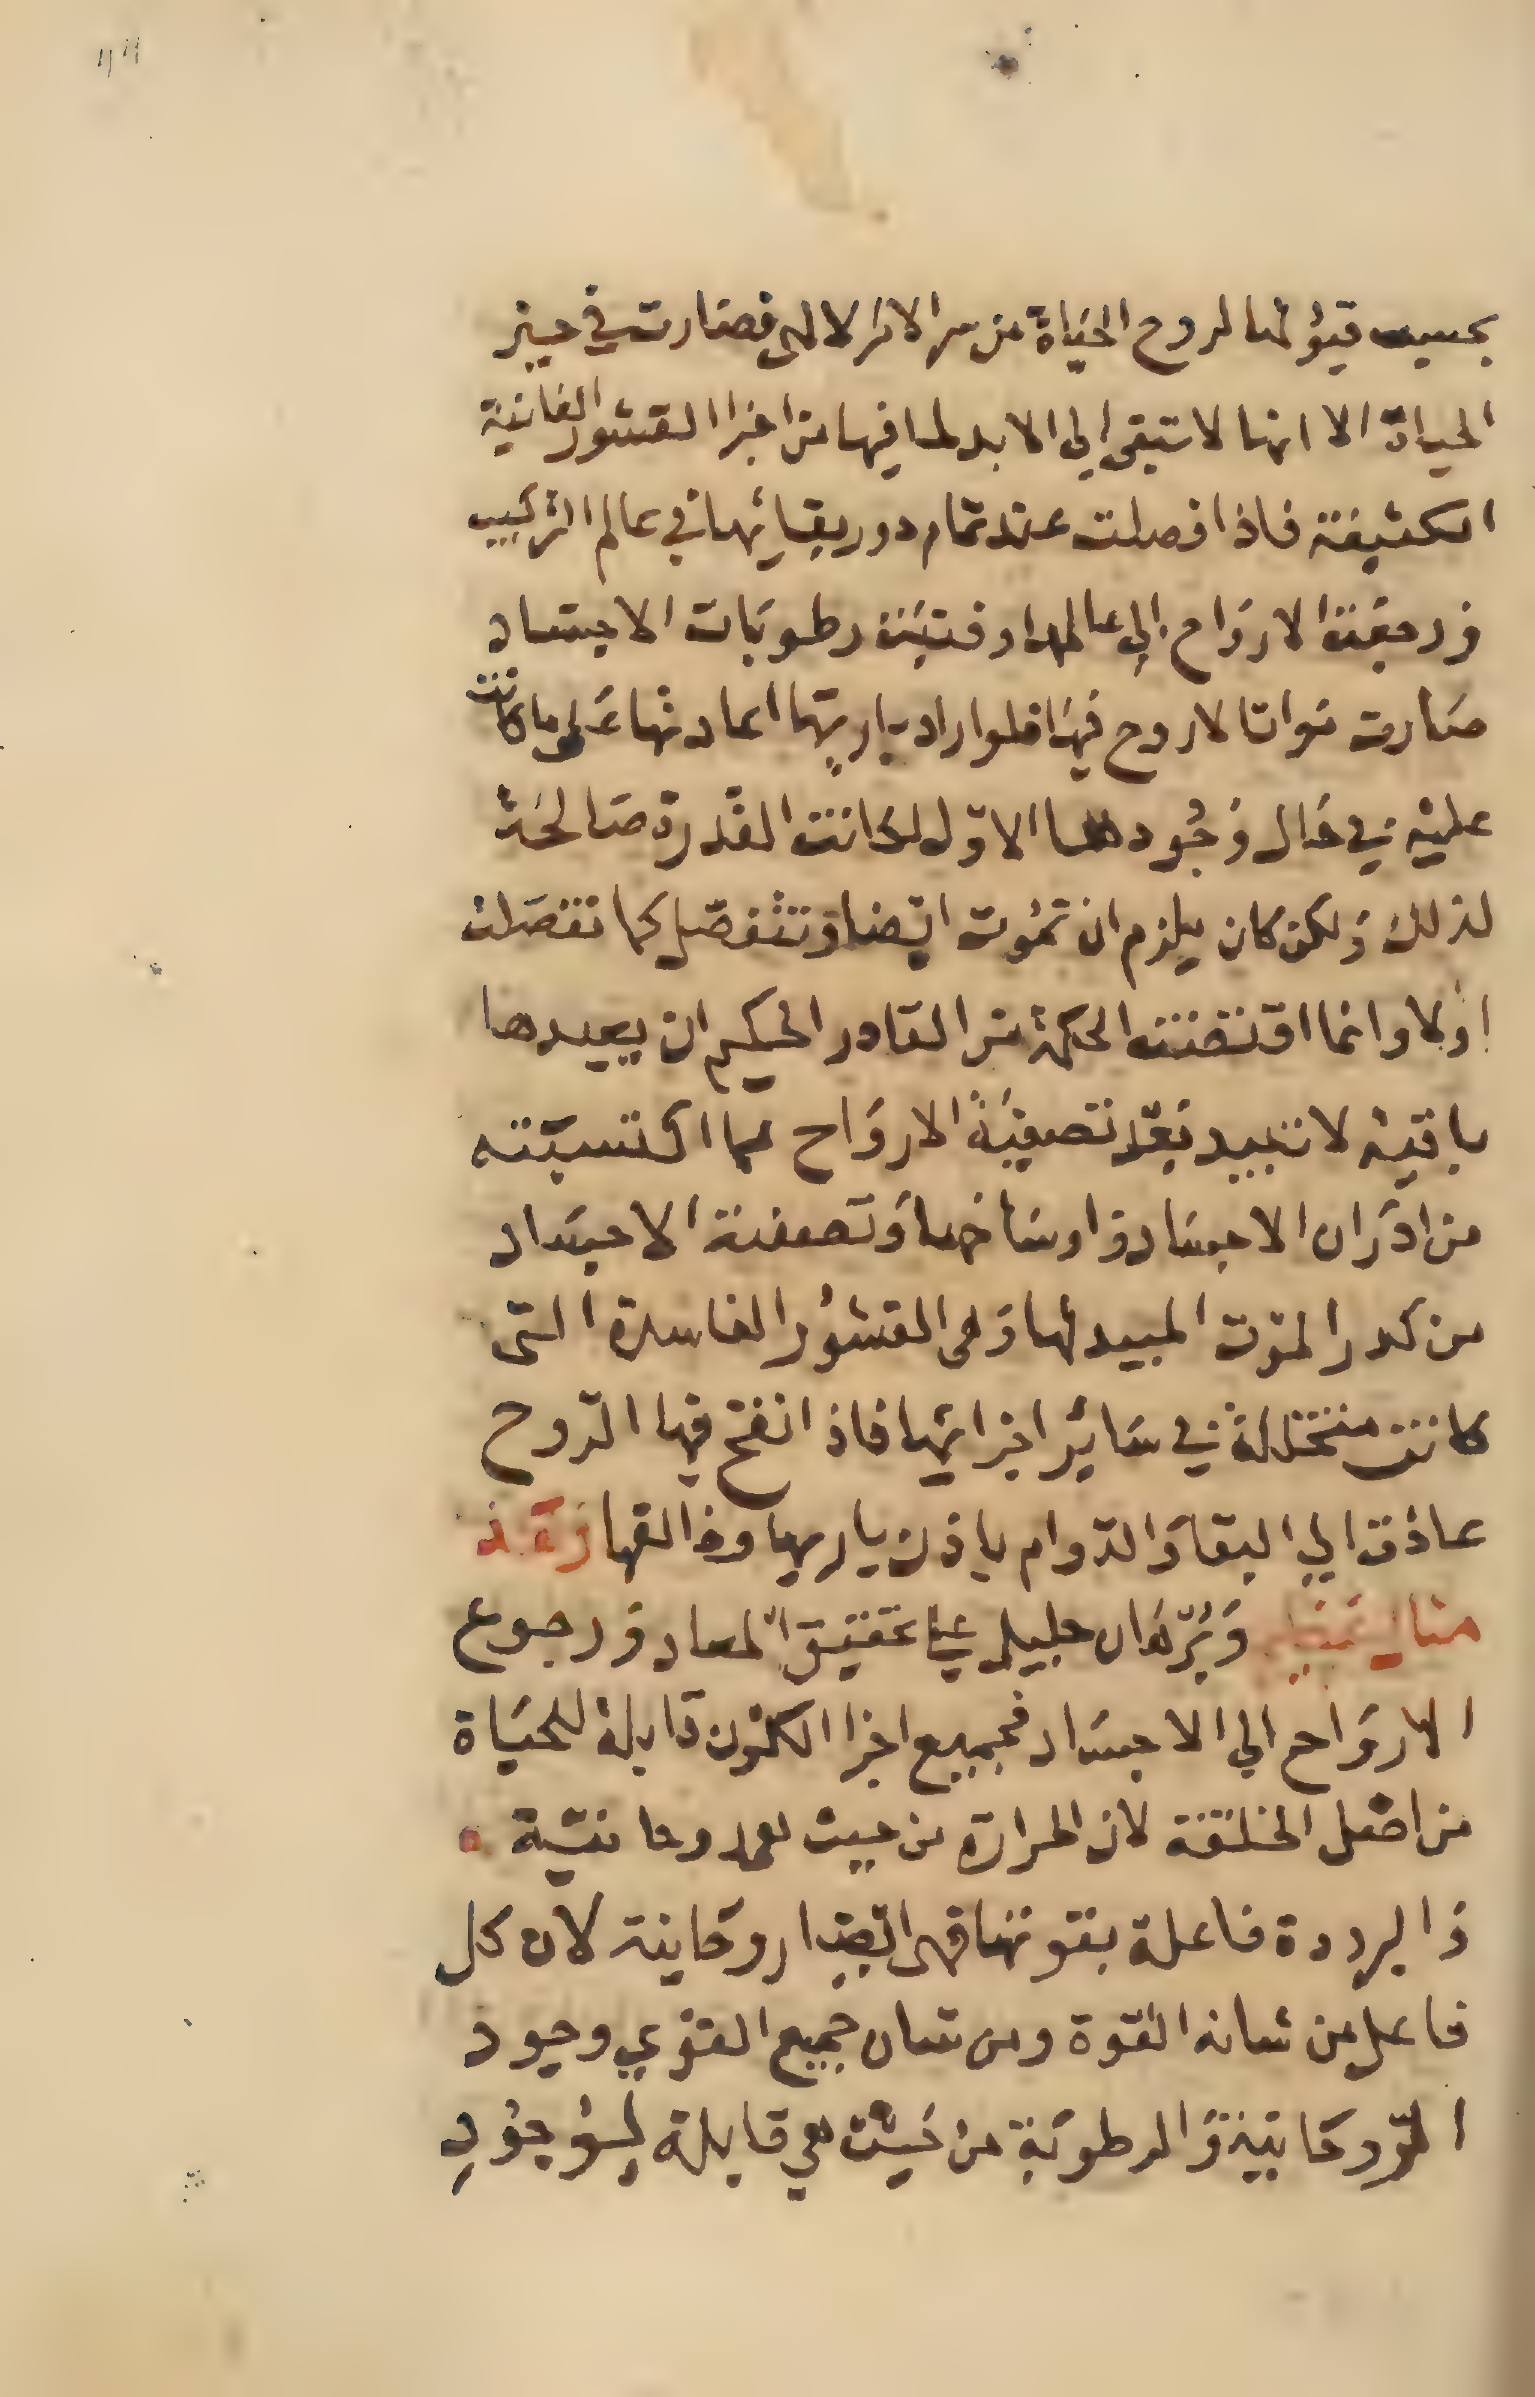 بحسب قبولها لروح الحياة من سر الامر الالهى فصارت في حيز
الحياة الا انها لا تبقى الى الابد لما فيها من اجزا القشور الفانية
الكثيفة فاذا فصلت عند تمام دور بقائها في عالم التركيب
ورجعت الارواح الى عالمها وفنيت رطوبات الاجساد
صارت مواتا لا روح فيها فلو اراد باريها اعادتها على ما كانت
عليه في حال وجودها الاول لكانت القدرة صالحة
لذلك ولكن كان يلزم ان تموت ايضا وتتفصل كما تفصلت
اولا وانما اقتضت الحكمة من القادر الحكيم ان يعيدها
باقية لا تبيد بعد تصفية الارواح مما اكتسبته
من ادران الاجساد واوساخها وتصفية الاجساد
من كدر الموت المبيد لها وهى القشور الفاسدة التى
كانت متخللة في سائر اجزائها فاذا نفخ فيها الروح
عادت الى البقا والدوام باذن باريها
مثال عظيم وبرهان جليل على تحقيق المعاد ورجوع
الارواح الى الاجساد فجميع اجزا الكون قابلة للحياة
من اصل الخلقة لان الحرارة من حيث روحانية
والبرودة فاعلة بقوتها فهى ايضا روحانية لان كل
فاعل من شانه القوة ومن شان جميع القوي وجود
الروحانية والرطوبة من حيث هي قابلة لوجود